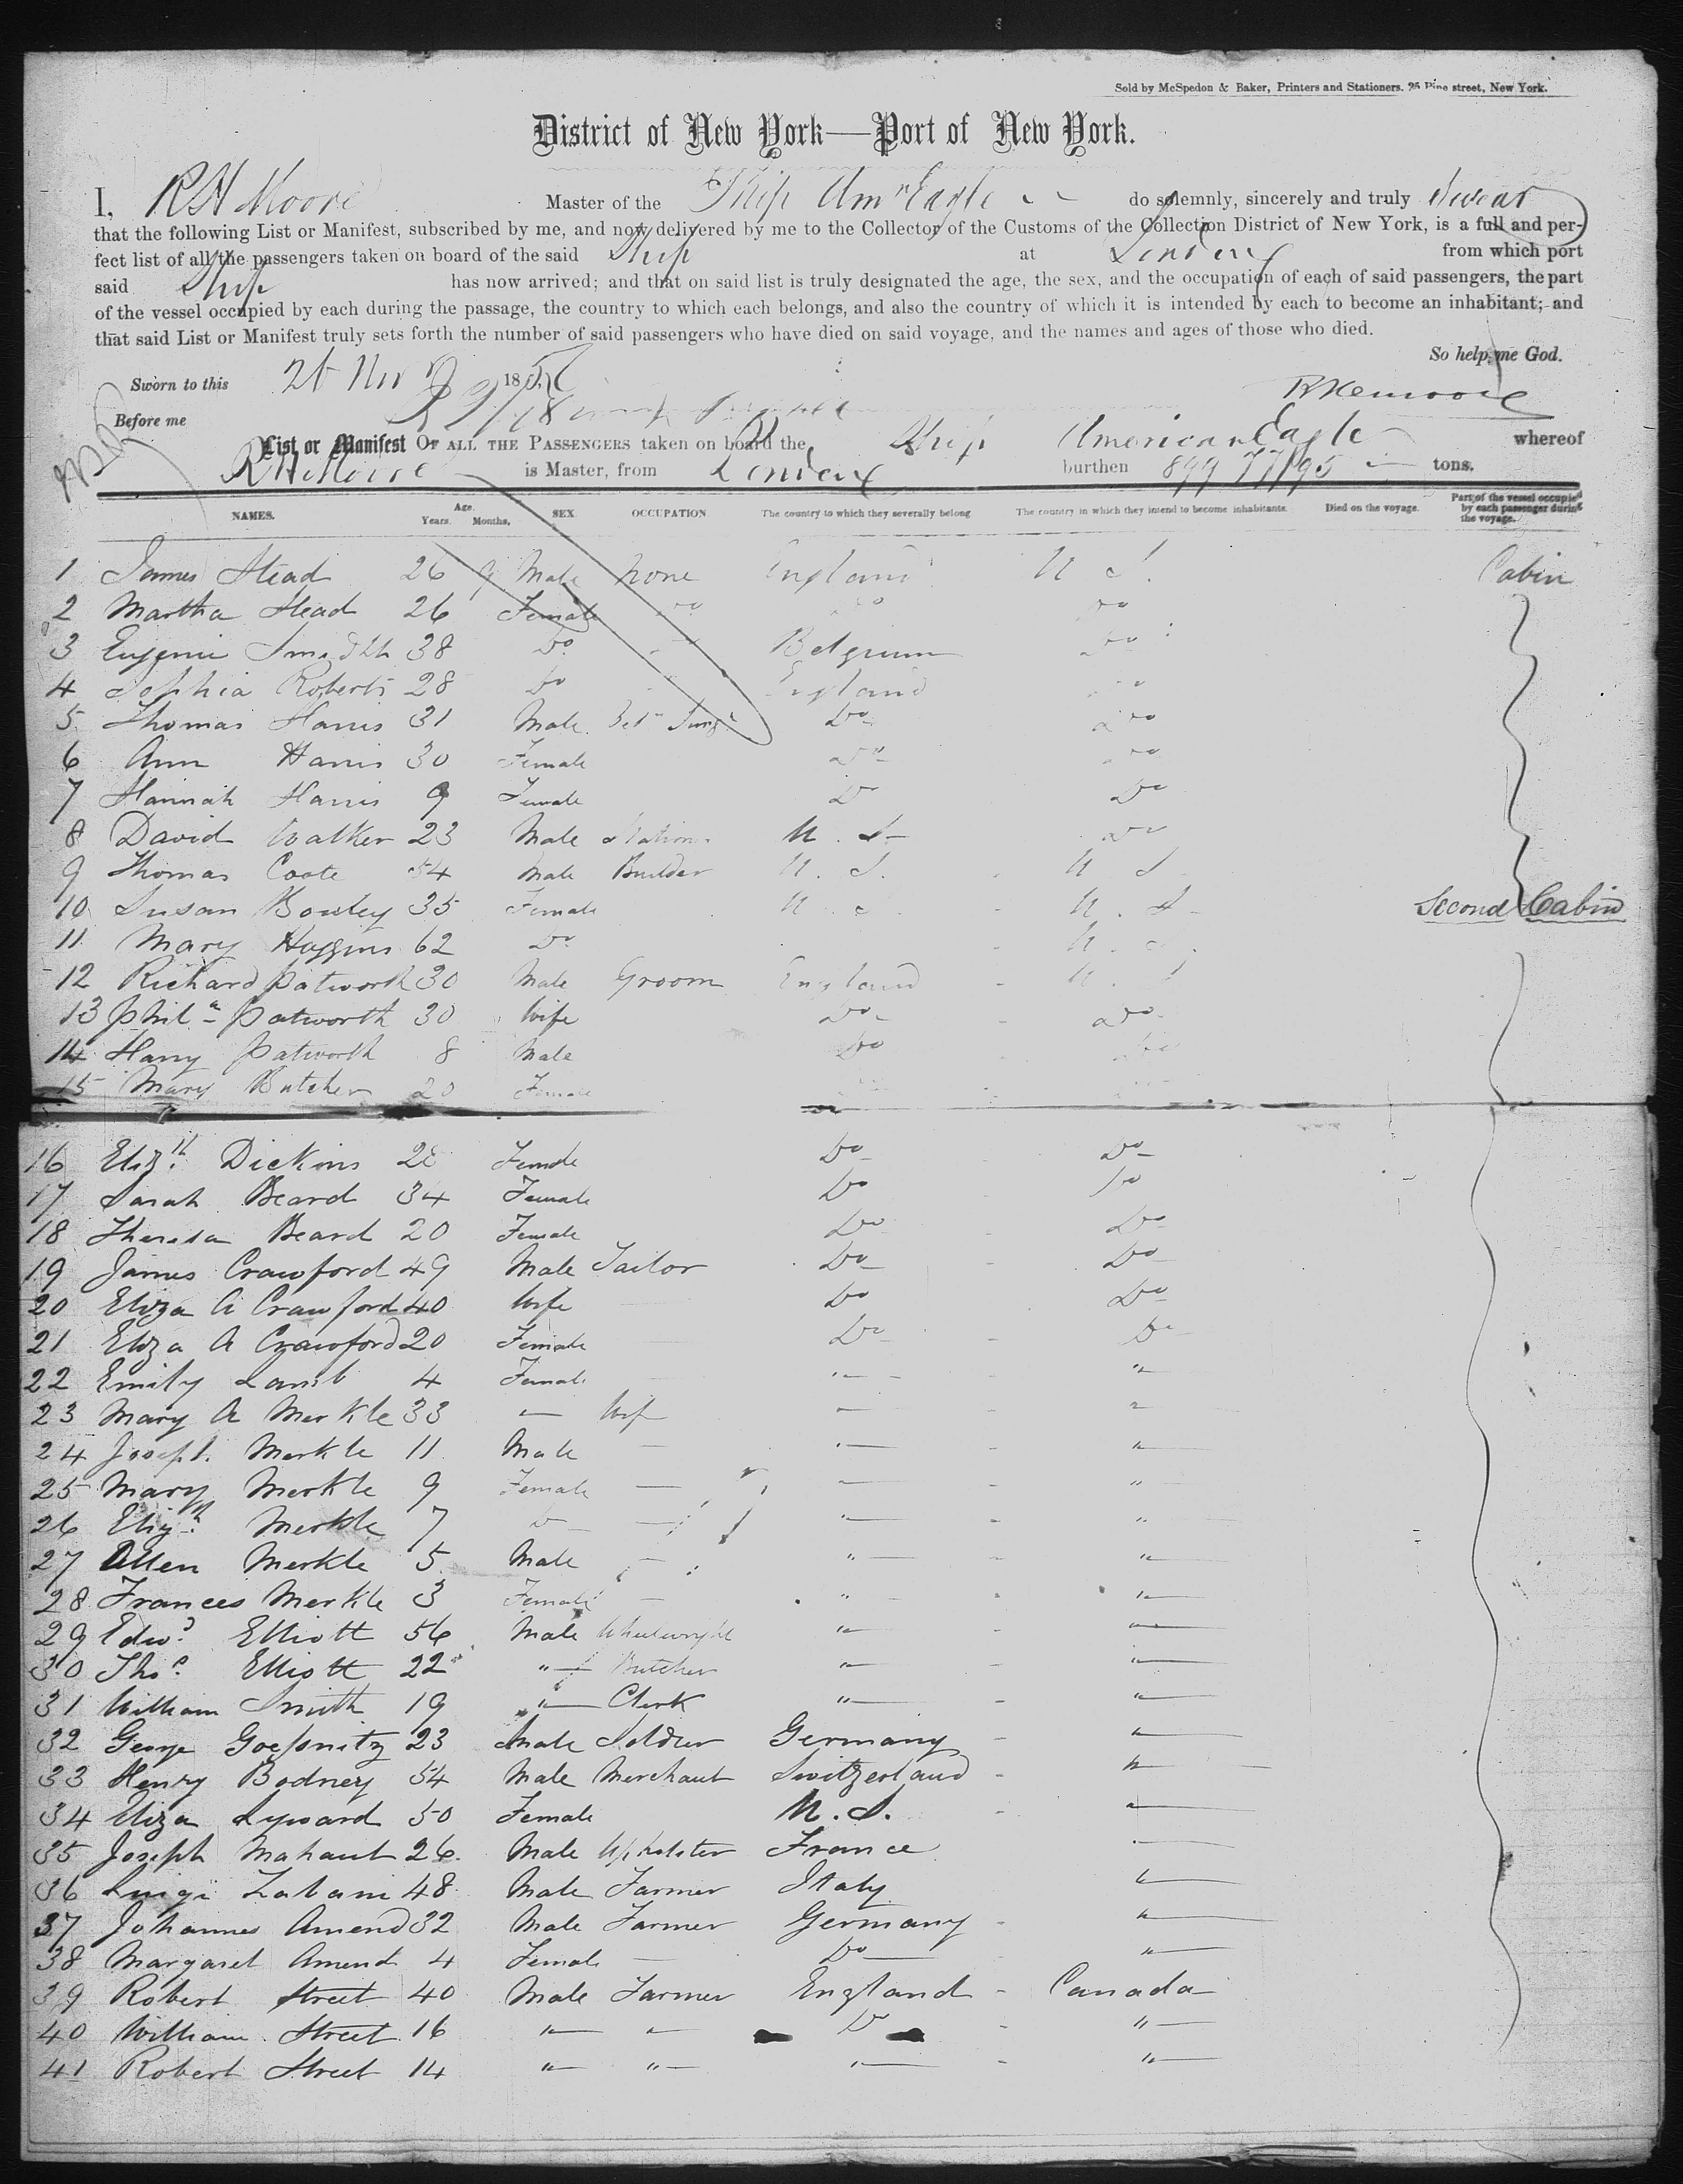 Sold by McSpedon & Baker, Printers and Stationers. 25 Pine street, New York.
District of New York—Port of New York.
I, R H Moore Master of the Ship Amn Eagle do solemnly, sincerely and truly Swear
that the following List or Manifest, subscribed by me, and now delivered by me to the Collector of the Customs of the Collection District of New York, is a full and per-
fect list of all the passengers taken on board of the said Ship at London from which port
said Ship has now arrived; and that on said list is truly designated the age, the sex, and the occupation of each of said passengers, the part
of the vessel occupied by each during the passage, the country to which each belongs, and also the country of which it is intended by each to become an inhabitant; and
that said List or Manifest truly sets forth the number of said passengers who have died on said voyage, and the names and ages of those who died.
So help me God.
Sworn to this Nov 185
R H Moore
Before me
List or Manifest OF ALL THE PASSENGERS taken on board the Ship American Eagle whereof
R H Moore is Master, from London burthen 899 77/95 tons.
NAMES. Age. Years. Months. SEX OCCUPATION The country to which they severally belong The country in which they intend to become inhabitants. Died on the voyage. Part of the vessel occupied by each passenger during the voyage.
1 James Head 26 9 Male None England U S. Cabin
2 Martha Head 26 Female Do Do Do
3 Eugenie 38 Do Belgium Do
4 Sophia Roberts 28 Do England
5 Thomas Harris 31 Male Do Do
6 Ann Harris 30 Female Do Do
7 Hannah Harris 9 Female Do Do
8 David Walker 23 Male U. S Do
9 Thomas Coote 54 Male Builder U. S. U S
10 Susan Bowley 35 Female U S U. S Second Cabin
11 Mary Huggins 62 Do U. S.
12 Richard Patworth 30 Male Groom England U. S
13 Phila Patworth 30 Wife Do Do
14 Harry Patworth 8 Male Do Do
15 Mary Butcher 20 Female
16 Elizth Dickins 28 Female Do Do
17 Sarah Beard 34 Female Do Do
18 Theresa Beard 20 Female Do Do
19 James Crawford 49 Male Tailor Do Do
20 Eliza A Crawford 40 Wife Do Do
21 Eliza A Crawford 20 Female Do Do
22 Emily Lamb 4 Female " "
23 Mary A Merkle 33 — Wife — "
24 Joseph Merkle 11 Male — " "
25 Mary Merkle 9 Female — — "
26 Elizth Merkle 7 Do — " "
27 Allen Merkle 5 Male — " "
28 Frances Merkle 3 Female — " "
29 Edwd Elliott 56 Male Wheelwright " "
30 Thos Elliott 22 " Butcher " "
31 William Smith 19 " Clerk " "
32 George Goessnitz 23 Male Soldier Germany "
33 Henry Bodney 54 Male Merchant Switzerland "
34 Eliza Lyward 50 Female U. S. "
35 Joseph Mahaut 26 Male Upholster France "
36 Luigi Zabani 48 Male Farmer Italy "
37 Johannes Amend 32 Male Farmer Germany "
38 Margaret Amend 4 Female — Do "
39 Robert Street 40 Male Farmer England Canada
40 William Street 16 " " Do "
41 Robert Street 14 " " " "